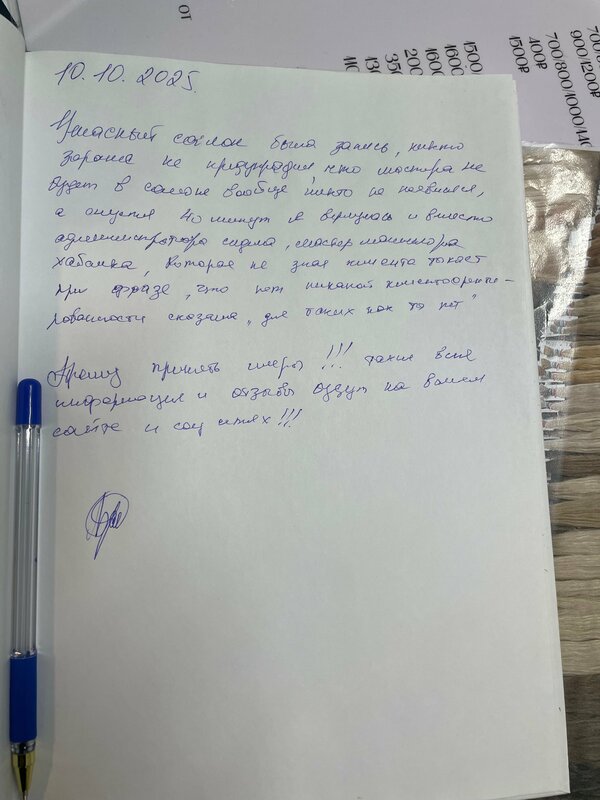 10.10.2025.
Ужасный салон была запись, никто
заранее не предупредил, что мастера не
будет в салоне вообще никто не появился,
а спустя 40 минут я вернулась и вместо
администратора сидела, мастер маникюра
хабалка, которая не зная клиента тыкает
при фразе, "что нет никакой клиентоориенти-
рованности сказала, "для таких как ты нет"
Прошу принять меры!!! также вся
информация и отзывы будут на вашем
сайте и соц сетях!!!
от
700/800/1000/
900/1200₽
400₽
1500₽